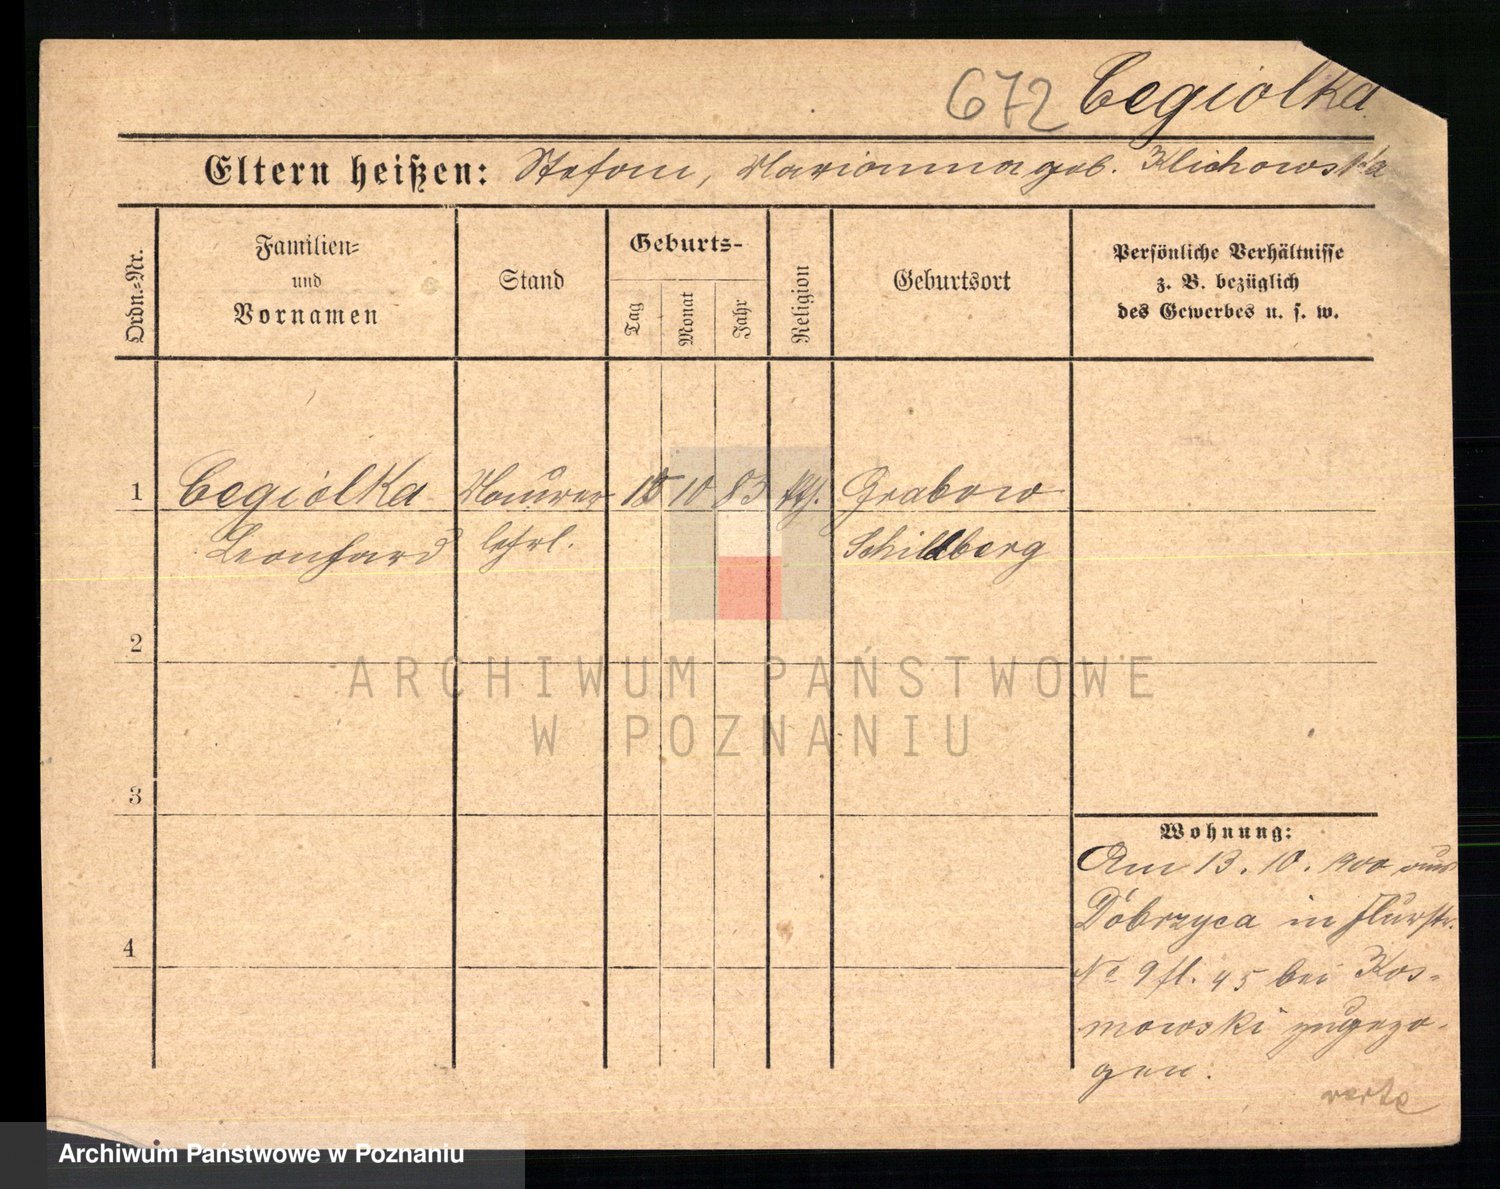 672 Cegiolka
Eltern heißen: Stefan, Marianna geb. Klichowska
Ordn.-Nr.
Familien-
und
Vornamen
Stand
Geburts-
Tag
Monat
Jahr
Religion
Geburtsort
Persönliche Verhältnisse
z. B. bezüglich
des Gewerbes u. s. w.
1 Cegiolka Maurer 10 83 Grabow
Leonhard lehrl. Schildberg
2
3
4
Wohnung:
Am 13. 10. 1900 aus
Dobrzyca in Flurstr.
No 9 fl. 45 bei Kos-
mowski zugezo-
gen.
verte
ARCHIWUM PAŃSTWOWE
W POZNANIU
Archiwum Państwowe w Poznaniu